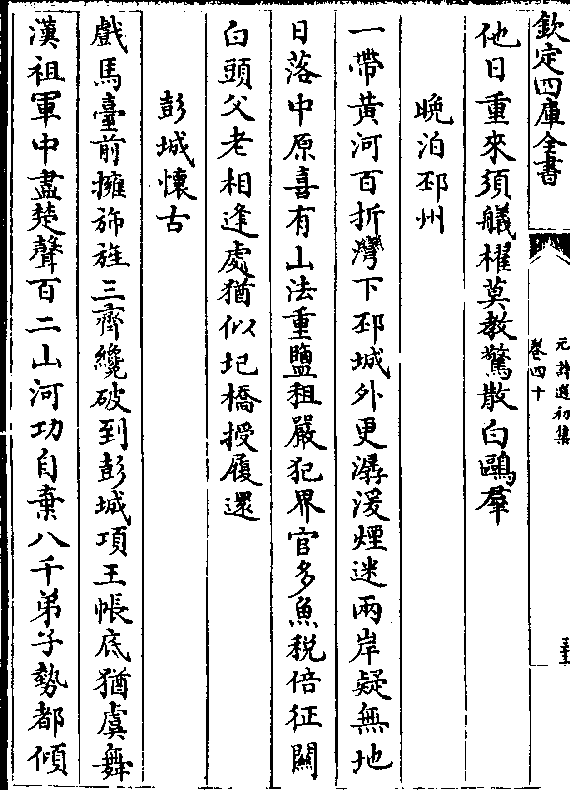 欽定四庫全書
元詩選初集
卷四十
他日重來須艤櫂莫教驚散白鷗羣
晚泊邳州
一帶黃河百折灣下邳城外更潺湲煙迷兩岸疑無地
日落中原喜有山法重鹽租嚴犯界官多魚稅倍征關
白頭父老相逢處猶似圯橋授履還
彭城懷古
戲馬臺前擁旆旌三齊纔破到彭城項王帳底猶虞舞
漢祖軍中盡楚聲百二山河功自棄八千弟子勢都傾